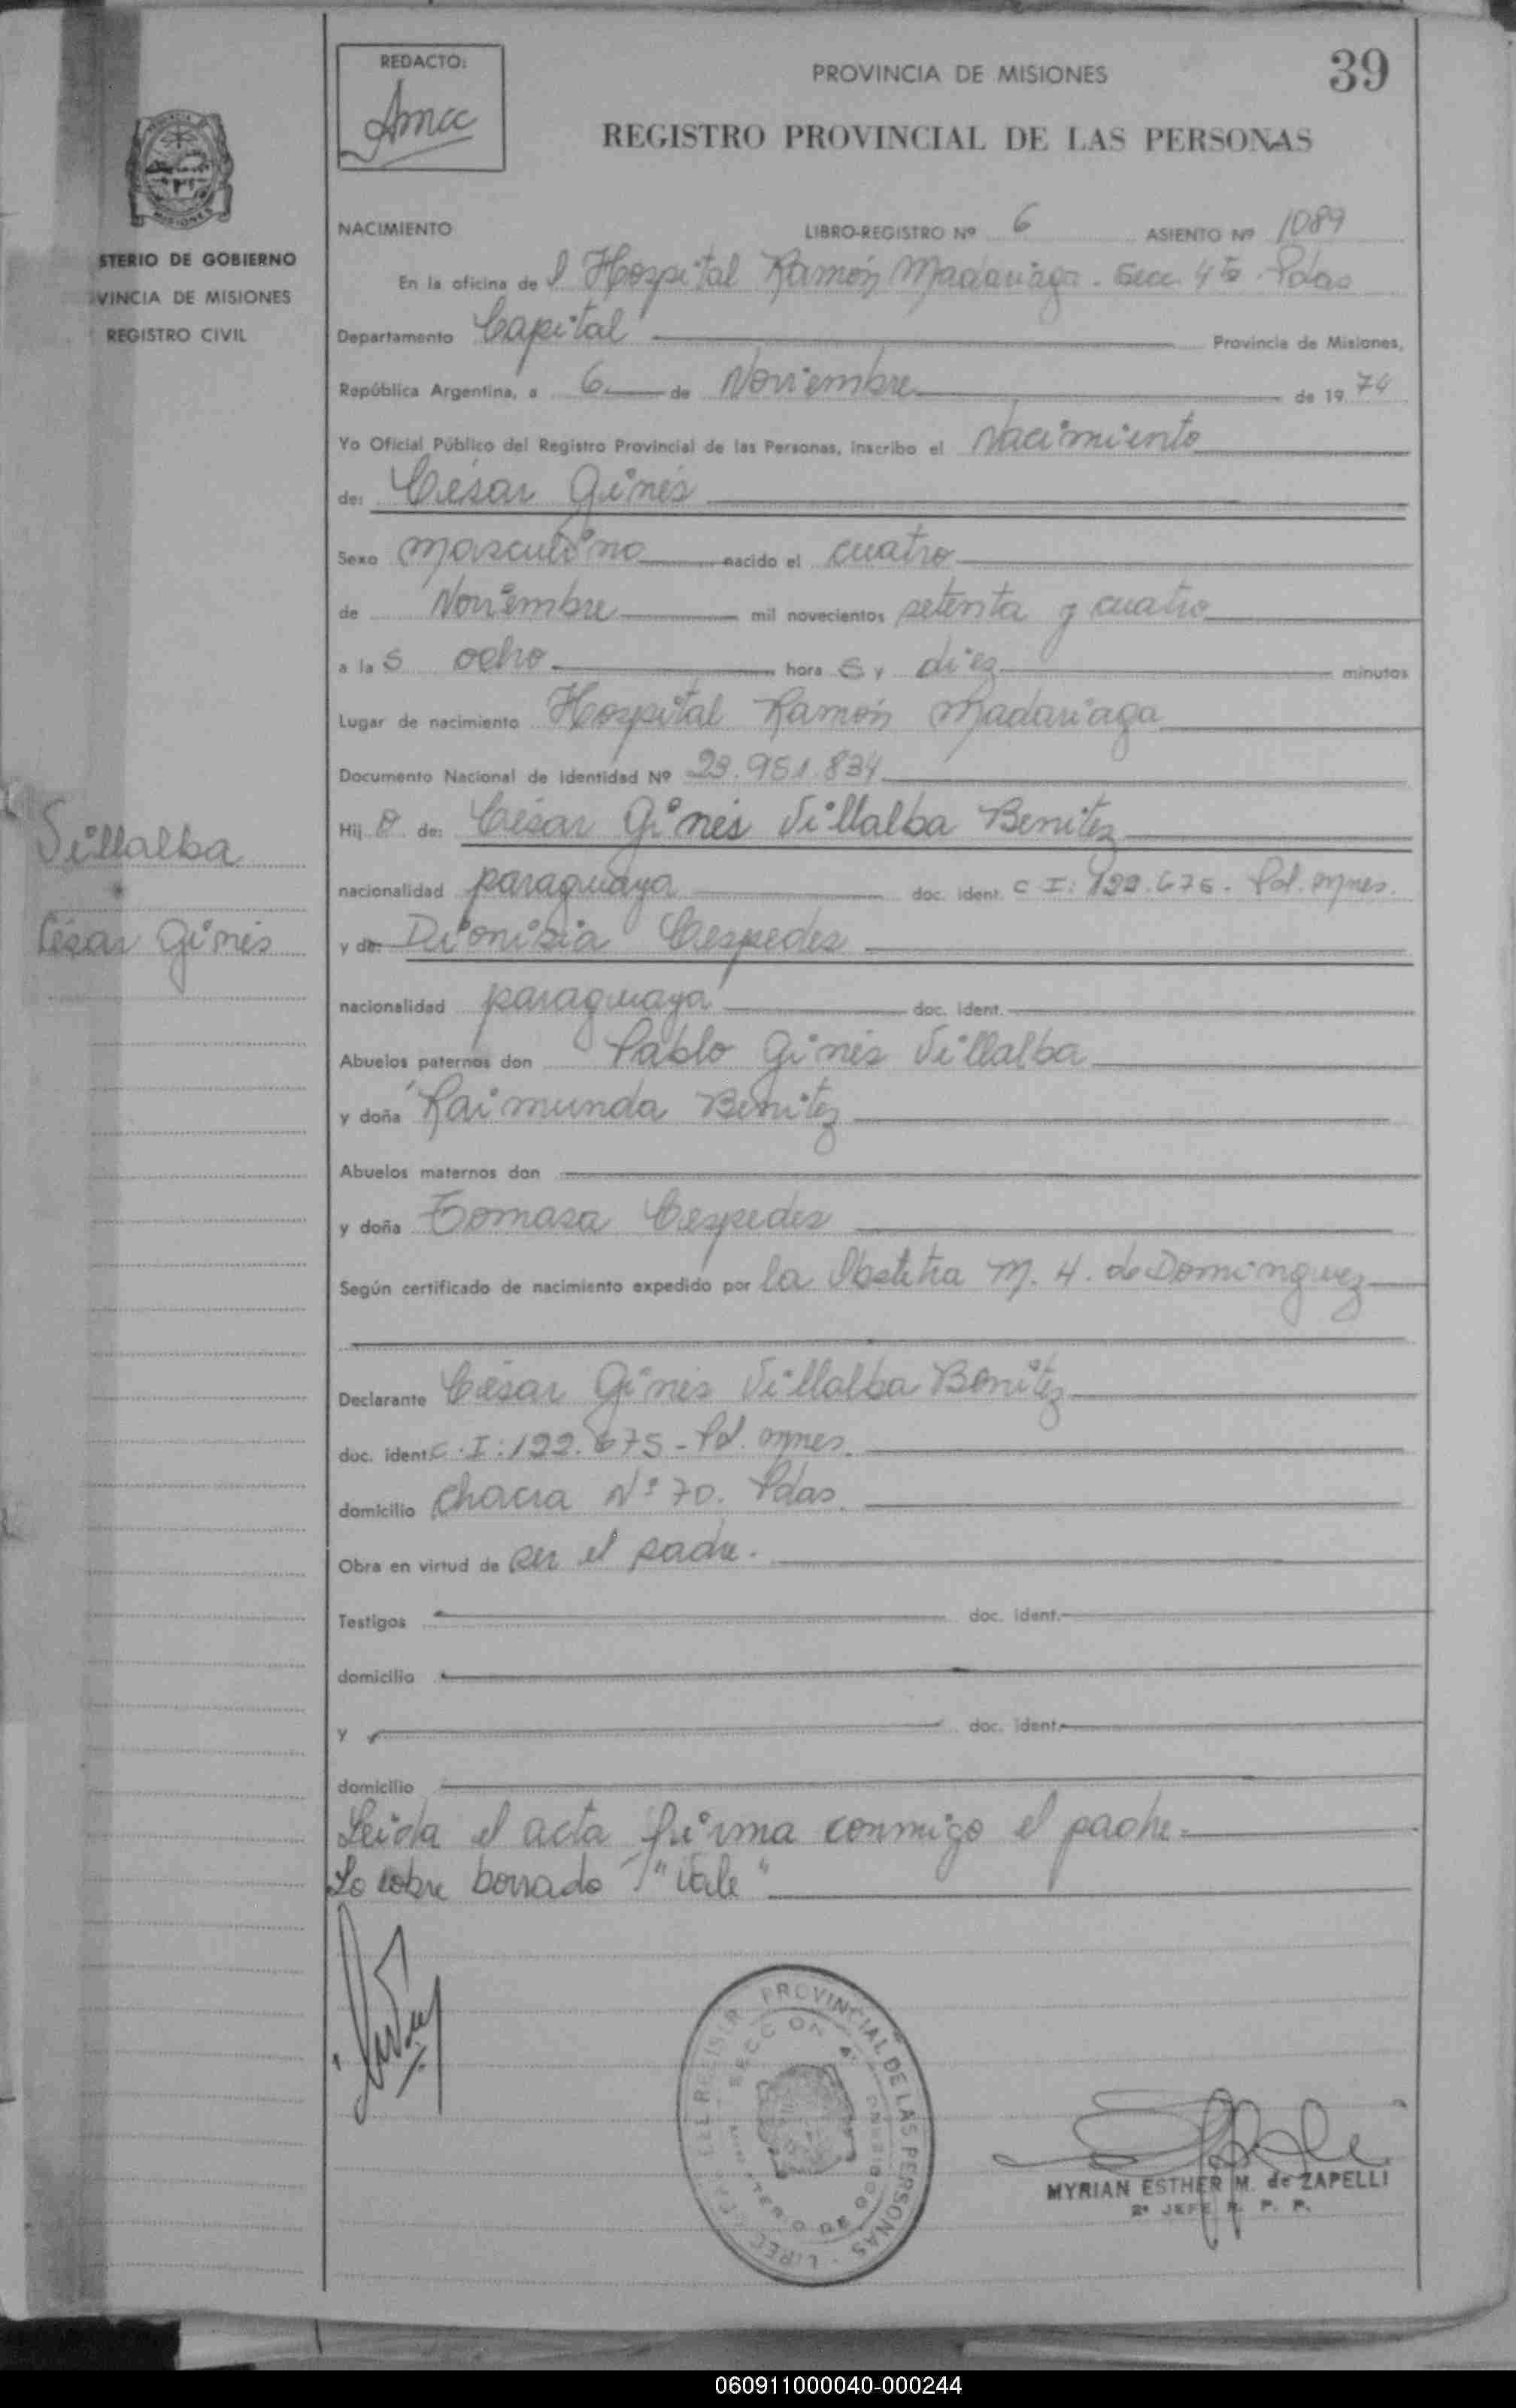 39
REDACTO:
PROVINCIA DE MISIONES
REGISTRO PROVINCIAL DE LAS PERSONAS
STERIO DE GOBIERNO
VINCIA DE MISIONES
REGISTRO CIVIL
NACIMIENTO LIBRO-REGISTRO Nº 6 ASIENTO Nº 1089
En la oficina de l Hospital Ramón Madariaga - Secc 4ta. Pdas
Departamento Capital Provincia de Misiones,
República Argentina, a 6 de Noviembre de 1974
Yo Oficial Público del Registro Provincial de las Personas, inscribo el Nacimiento
de: César Ginés
Sexo masculino nacido el cuatro
de Noviembre mil novecientos setenta y cuatro
a las ocho horas y diez minutos
Lugar de nacimiento Hospital Ramón Madariaga
Documento Nacional de Identidad Nº 23.951.834
Hijo de: César Ginés Villalba Benitez
Villalba
nacionalidad paraguaya doc. ident. C I: 122.675 - Pol. mnes.
César Ginés
y de: Dionisia Cespedes
nacionalidad paraguaya doc. ident.
Abuelos paternos don Pablo Ginés Villalba
y doña Raimunda Benitez
Abuelos maternos don
y doña Tomasa Cespedes
Según certificado de nacimiento expedido por la Obstetra M. H. de Dominguez
Declarante César Ginés Villalba Benitez
doc. ident. C. I: 122.675 - Pol. mnes.
domicilio Chacra Nº 70. Pdas.
Obra en virtud de ser el padre.
Testigos doc. ident.
domicilio
y doc. ident.
domicilio
Leida el acta firma conmigo el padre.
Lo sobre borrado "Vale"
PROVINCIAL DE LAS PERSONAS
SECCION 4ª
MYRIAN ESTHER M. de ZAPELLI
2º JEFE R. P. P.
060911000040-000244